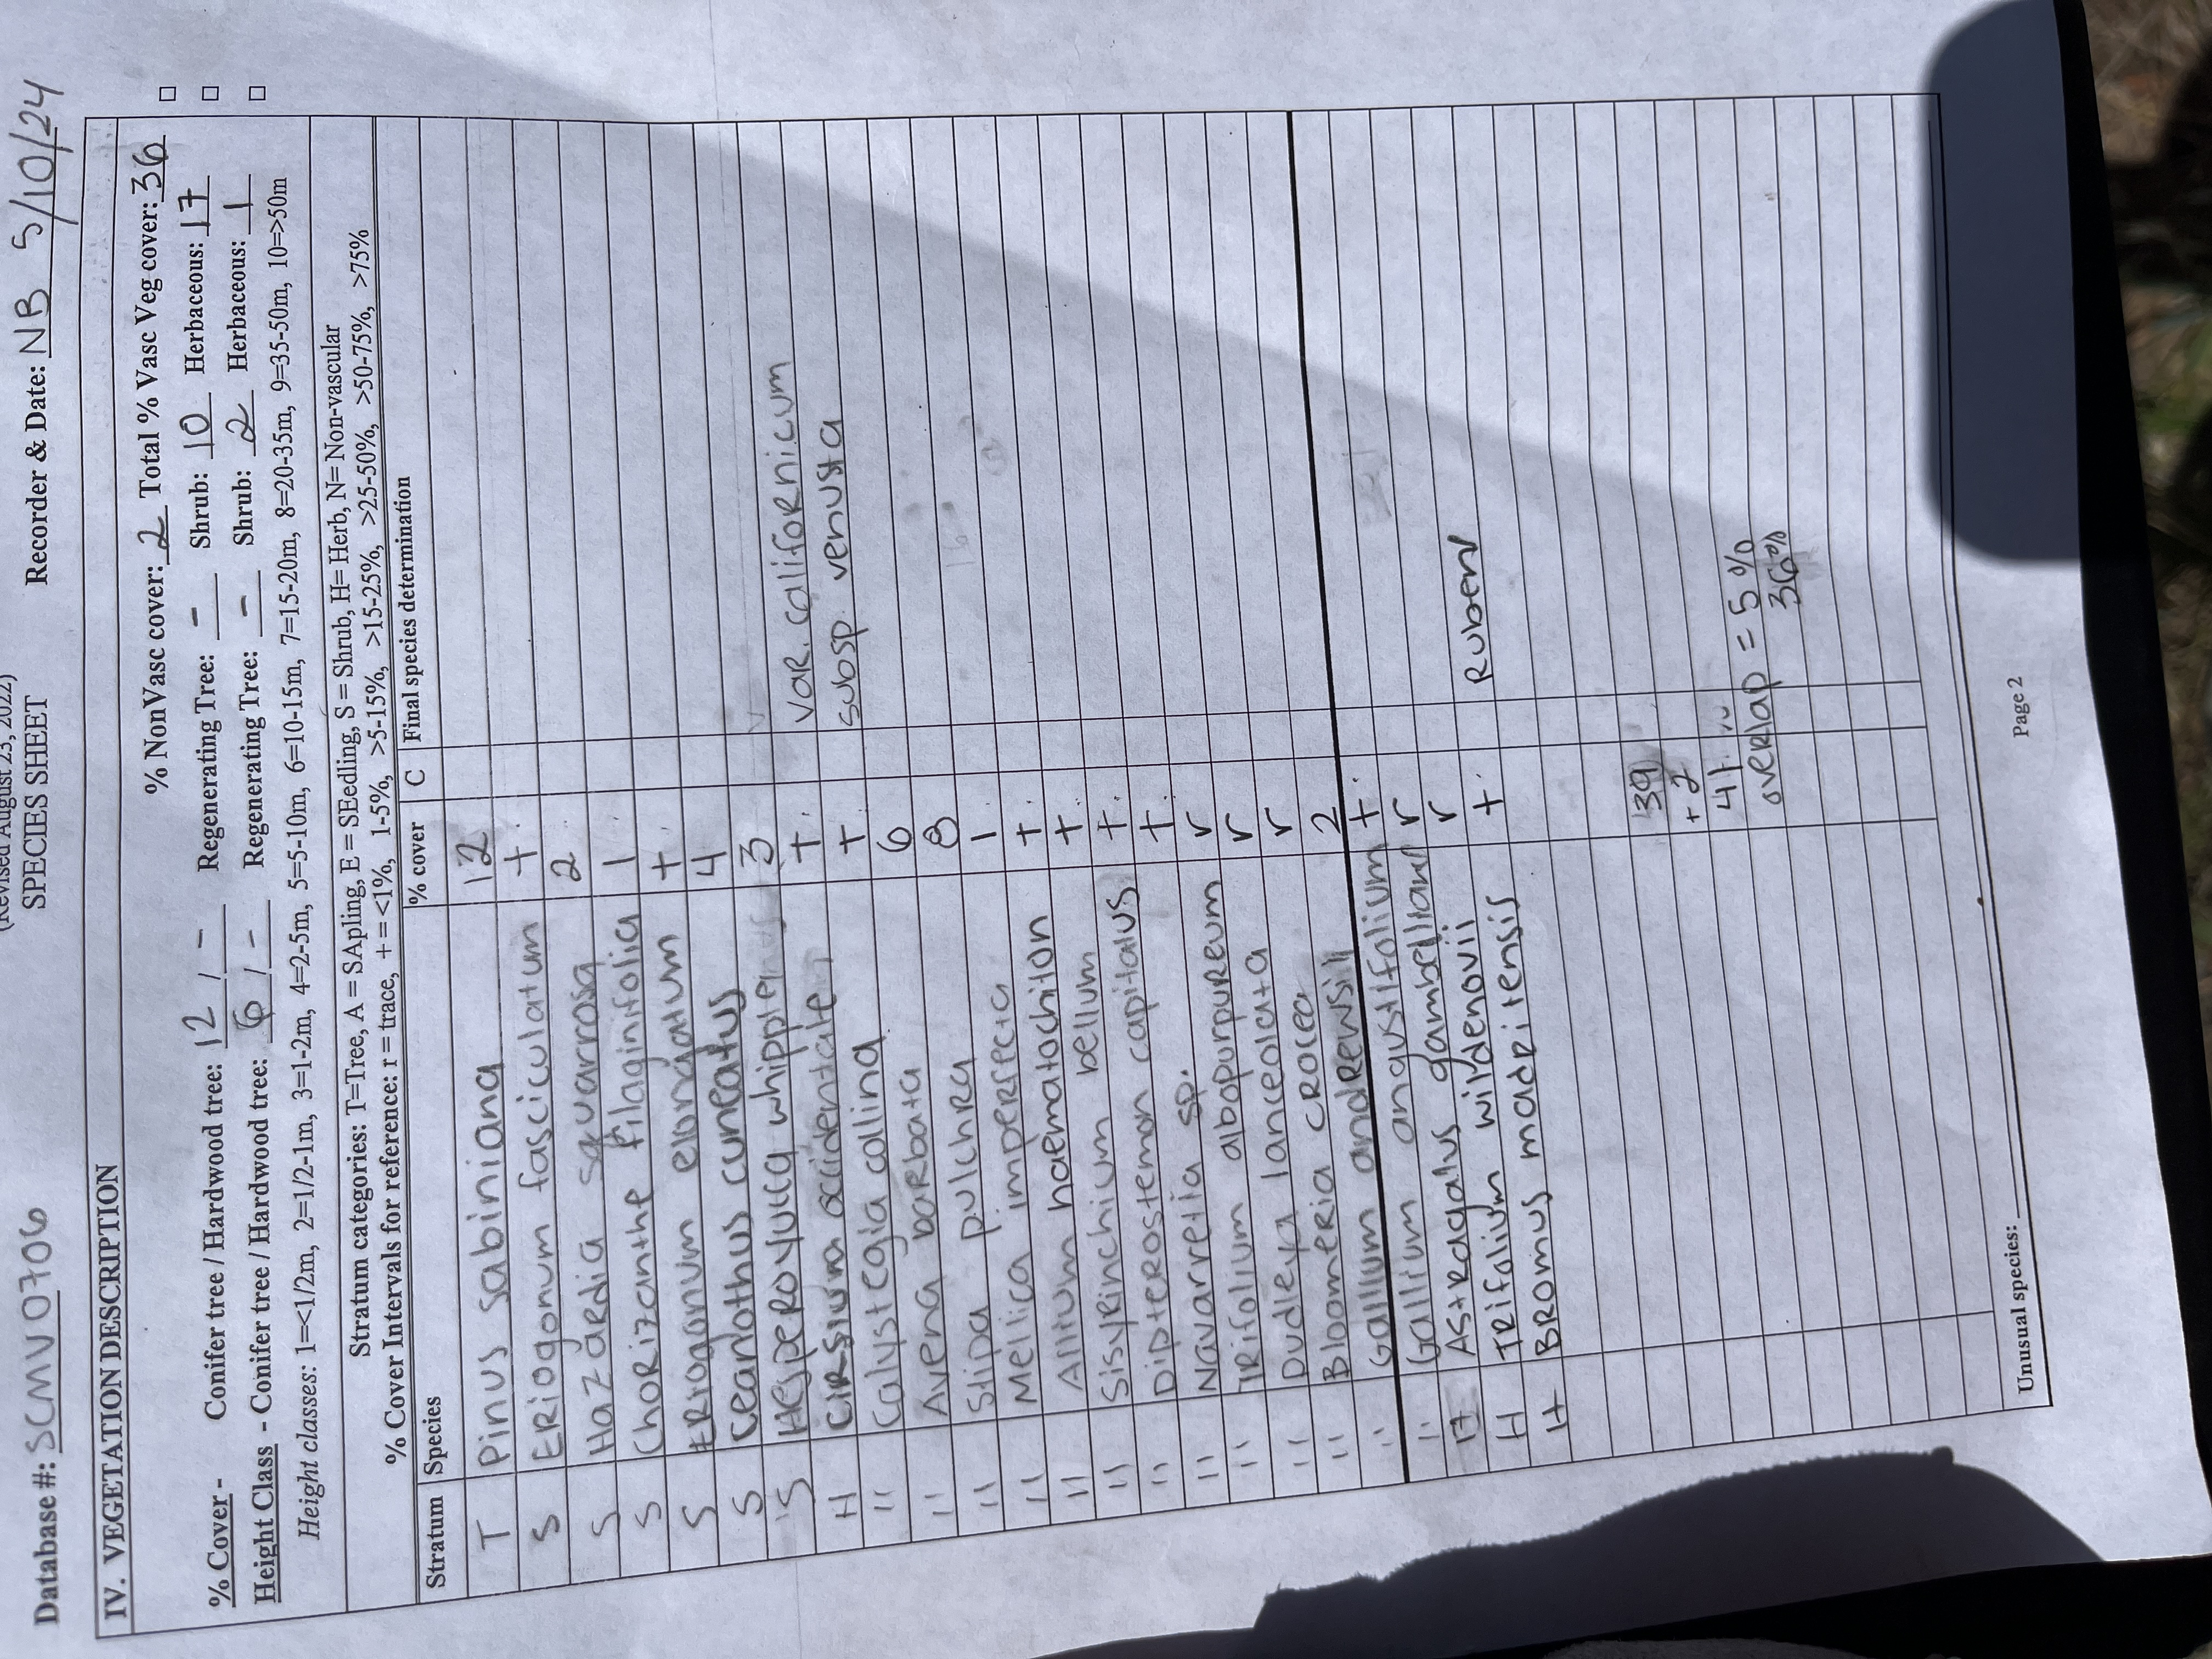 (Revised August 23, 2022)
SPECIES SHEET
Database #: SCMV0706 Recorder & Date: NB 5/10/24
IV. VEGETATION DESCRIPTION
% NonVasc cover: 2 Total % Vasc Veg cover: 36
% Cover - Conifer tree / Hardwood tree: 12 / - Regenerating Tree: - Shrub: 10 Herbaceous: 17
Height Class - Conifer tree / Hardwood tree: 6 / - Regenerating Tree: - Shrub: 2 Herbaceous: 1
Height classes: 1=<1/2m, 2=1/2-1m, 3=1-2m, 4=2-5m, 5=5-10m, 6=10-15m, 7=15-20m, 8=20-35m, 9=35-50m, 10=>50m
Stratum categories: T=Tree, A = SApling, E = SEedling, S = Shrub, H= Herb, N= Non-vascular
% Cover Intervals for reference: r = trace, + = <1%, 1-5%, >5-15%, >15-25%, >25-50%, >50-75%, >75%
Stratum Species % cover C Final species determination
T Pinus sabiniana 12
S Eriogonum fasciculatum +
S Hazardia squarrosa 2
S Chorizanthe filaginifolia 1
S Eriogonum elongatum +
S Ceanothus cuneatus 4
S Hesperoyucca whipplei 3
H Cirsium occidentale + var. californicum
" Calystegia collina + subsp. venusta
" Avena barbata 6
" Stipa pulchra 8
" Mellica imperfecta 1
" Allium haematochiton +
" Sisyrinchium bellum +
" Dipterostemon capitatus +
" Navarretia sp. +
" Trifolium albopurpureum r
" Dudleya lanceolata r
" Bloomeria crocea r
" Gallium andrewsii 2
" Gallium angustifolium +
H Astragalus gambellianus r
H Trifolium wildenovii r
H Bromus madritensis + Rubens
39
+2
41
overlap = 5%
36%
Unusual species:
Page 2